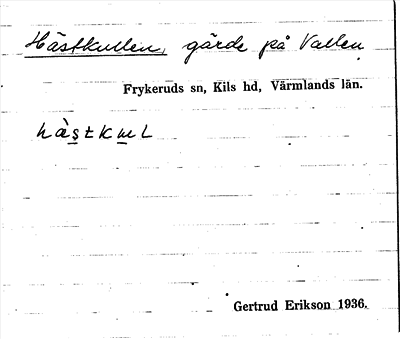 Hästkullen, gärde på Vallen
Frykeruds sn, Kils hd, Värmlands län.
hàstkul
Gertrud Erikson 1936.